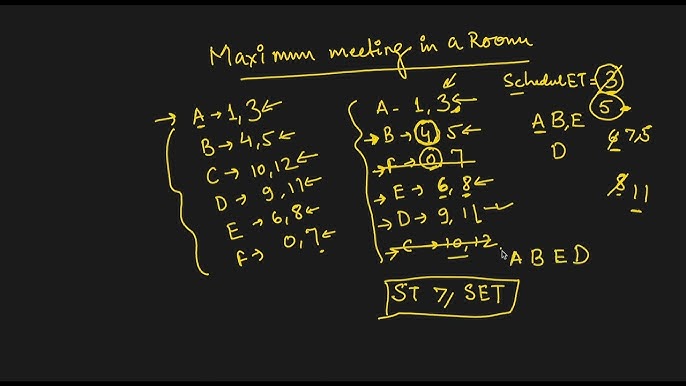 Maximum meeting in a Room
A → 1,3
B → 4,5
C → 10,12
D → 9,11
E → 6,8
F → 0,7
A - 1, 3
B → 4 5
F → 0 7
E → 6, 8
D → 9, 11
C → 10, 12
Schedul ET = 3
5
A B, E
D
6 7,5
8 11
A B E D
ST 7, SET